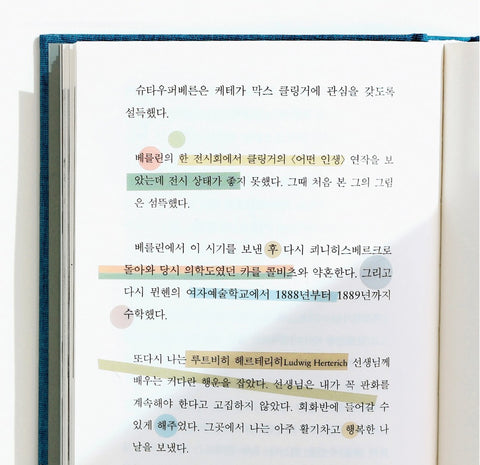 슈타우퍼베른은 케테가 막스 클링거에 관심을 갖도록
설득했다.
베를린의 한 전시회에서 클링거의 〈어떤 인생〉 연작을 보
았는데 전시 상태가 좋지 못했다. 그때 처음 본 그의 그림
은 섬뜩했다.
베를린에서 이 시기를 보낸 후 다시 쾨니히스베르크로
돌아와 당시 의학도였던 카를 콜비츠와 약혼한다. 그리고
다시 뮌헨의 여자예술학교에서 1888년부터 1889년까지
수학했다.
또다시 나는 루트비히 헤르테리히Ludwig Herterich 선생님께
배우는 커다란 행운을 잡았다. 선생님은 내가 꼭 판화를
계속해야 한다고 고집하지 않았다. 회화반에 들어갈 수
있게 해주었다. 그곳에서 나는 아주 활기차고 행복한 나
날을 보냈다.